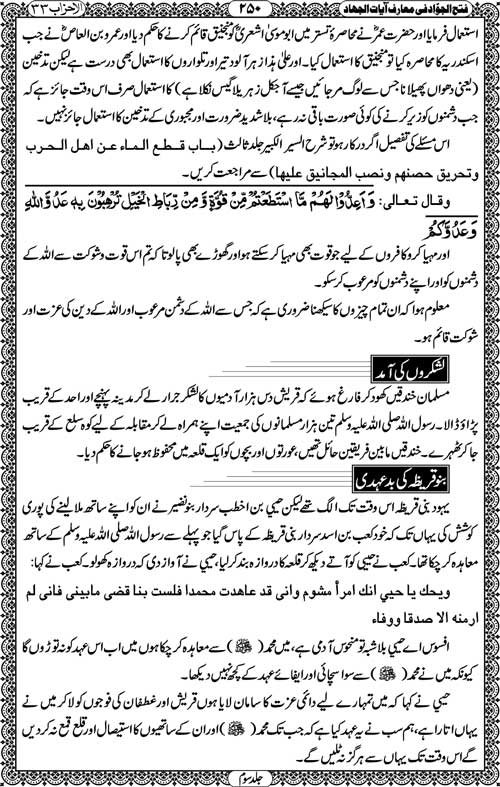 فتح الجوّاد فی معارف آیات الجهاد ۲۵۰ الاحزاب ۳۳
استعمال فرمایا اور حضرت عمرؓ نے محاصرۂ تستر میں ابوموسیٰ اشعریؓ کو منجنیق قائم کرنے کا حکم دیا اور عمرو بن العاصؓ نے جب
اسکندریہ کا محاصرہ کیا تو منجنیق کا استعمال کیا۔ اور علیٰ ہذا زہر آلود تیر اور تلواروں کا استعمال بھی درست ہے لیکن تدخین
(یعنی دھواں پھیلانا جس سے لوگ مر جائیں جیسے آجکل زہریلا گیس نکلا ہے) کا استعمال صرف اس وقت جائز ہے کہ
جب دشمنوں کو زیر کرنے کی کوئی صورت باقی نہ رہے، بلا شدید ضرورت اور مجبوری کے تدخین کا استعمال جائز نہیں۔
اس مسئلے کی تفصیل اگر درکار ہو تو شرح السیر الکبیر جلد ثالث (باب قطع الماء عن اهل الحرب
وتحریق حصنهم ونصب المجانیق علیها) سے مراجعت کریں۔
وقال تعالی: وَاَعِدُّوْا لَهُمْ مَّا اسْتَطَعْتُمْ مِّنْ قُوَّةٍ وَّمِنْ رِّبَاطِ الْخَیْلِ تُرْهِبُوْنَ بِهٖ عَدُوَّ اللّٰهِ
وَعَدُوَّکُمْ
اور مہیا کرو کافروں کے لیے جو قوت بھی مہیا کر سکتے ہو اور گھوڑے بھی پالو تا کہ تم اس قوت و شوکت سے اللہ کے
دشمنوں کو اور اپنے دشمنوں کو مرعوب کر سکو۔
معلوم ہوا کہ ان تمام چیزوں کا سیکھنا ضروری ہے کہ جس سے اللہ کے دشمن مرعوب اور اللہ کے دین کی عزت اور
شوکت قائم ہو۔
لشکروں کی آمد
مسلمان خندقیں کھود کر فارغ ہوئے کہ قریش دس ہزار آدمیوں کا لشکر جرار لے کر مدینہ پہنچے اور احد کے قریب
پڑاؤ ڈالا۔ رسول اللہ صلی اللہ علیہ وسلم تین ہزار مسلمانوں کی جمعیت اپنے ہمراہ لے کر مقابلہ کے لیے کوہ سلع کے قریب
جا کر ٹھہرے۔ خندقیں مابین فریقین حائل تھیں، عورتوں اور بچوں کو ایک قلعہ میں محفوظ ہو جانے کا حکم دیا۔
بنو قریظہ کی بدعہدی
یہود بنی قریظہ اس وقت تک الگ تھے لیکن حیی بن اخطب سردار بنو نضیر نے ان کو اپنے ساتھ ملا لینے کی پوری
کوشش کی یہاں تک کہ خود کعب بن اسد سردار بنی قریظہ کے پاس گیا جو پہلے سے رسول اللہ صلی اللہ علیہ وسلم کے ساتھ
معاہدہ کر چکا تھا۔ کعب نے حیی کو آتے دیکھ کر قلعہ کا دروازہ بند کر لیا، حیی نے آواز دی کہ دروازہ کھولو۔ کعب نے کہا:
ویحک یا حیی انک امرأ مشوم وانی قد عاهدت محمدا فلست بنا قضی مابینی فانی لم
ارمنه الا صدقا ووفاء
افسوس اے حیی بلا شبہ تو منحوس آدمی ہے، میں محمد (ﷺ) سے معاہدہ کر چکا ہوں میں اب اس عہد کو نہ توڑوں گا
کیونکہ میں نے محمد (ﷺ) سے سوا سچائی اور ایفائے عہد کے کچھ نہیں دیکھا۔
حیی نے کہا کہ میں تمہارے لیے دائمی عزت کا سامان لایا ہوں قریش اور غطفان کی فوجوں کو لا کر میں نے
یہاں اتارا ہے، ہم سب نے یہ عہد کیا ہے کہ جب تک محمد (ﷺ) اور ان کے ساتھیوں کا استیصال اور قلع قمع نہ کر دیں
گے اس وقت تک یہاں سے ہرگز نہ ٹلیں گے۔
جلد سوم